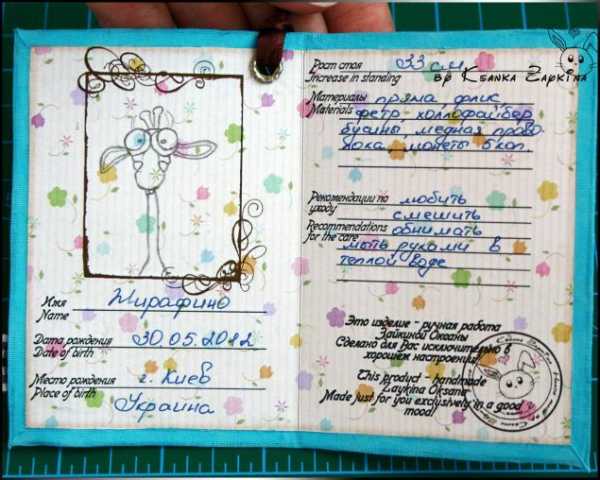 Имя
Name
Жирафино
Дата рождения
Date of birth
30.05.2012
Место рождения
Place of birth
г. Киев
Украина
Рост стоя
Increase in standing
33 см
by Ksanka Zaykina
Материалы
Materials
пряжа, флис
фетр, холлофайбер
бусины, медная прово
лока, монеты 5 коп.
Рекомендации по
уходу
Recommendations
for the care
любить
смешить
обнимать
мыть руками в
теплой воде
Это изделие - ручная работа
Зайкиной Оксаны
Сделано для Вас исключительно в
хорошем настроении!
This product - handmade
Zaykina Oksana
Made just for you exclusively in a good
mood!